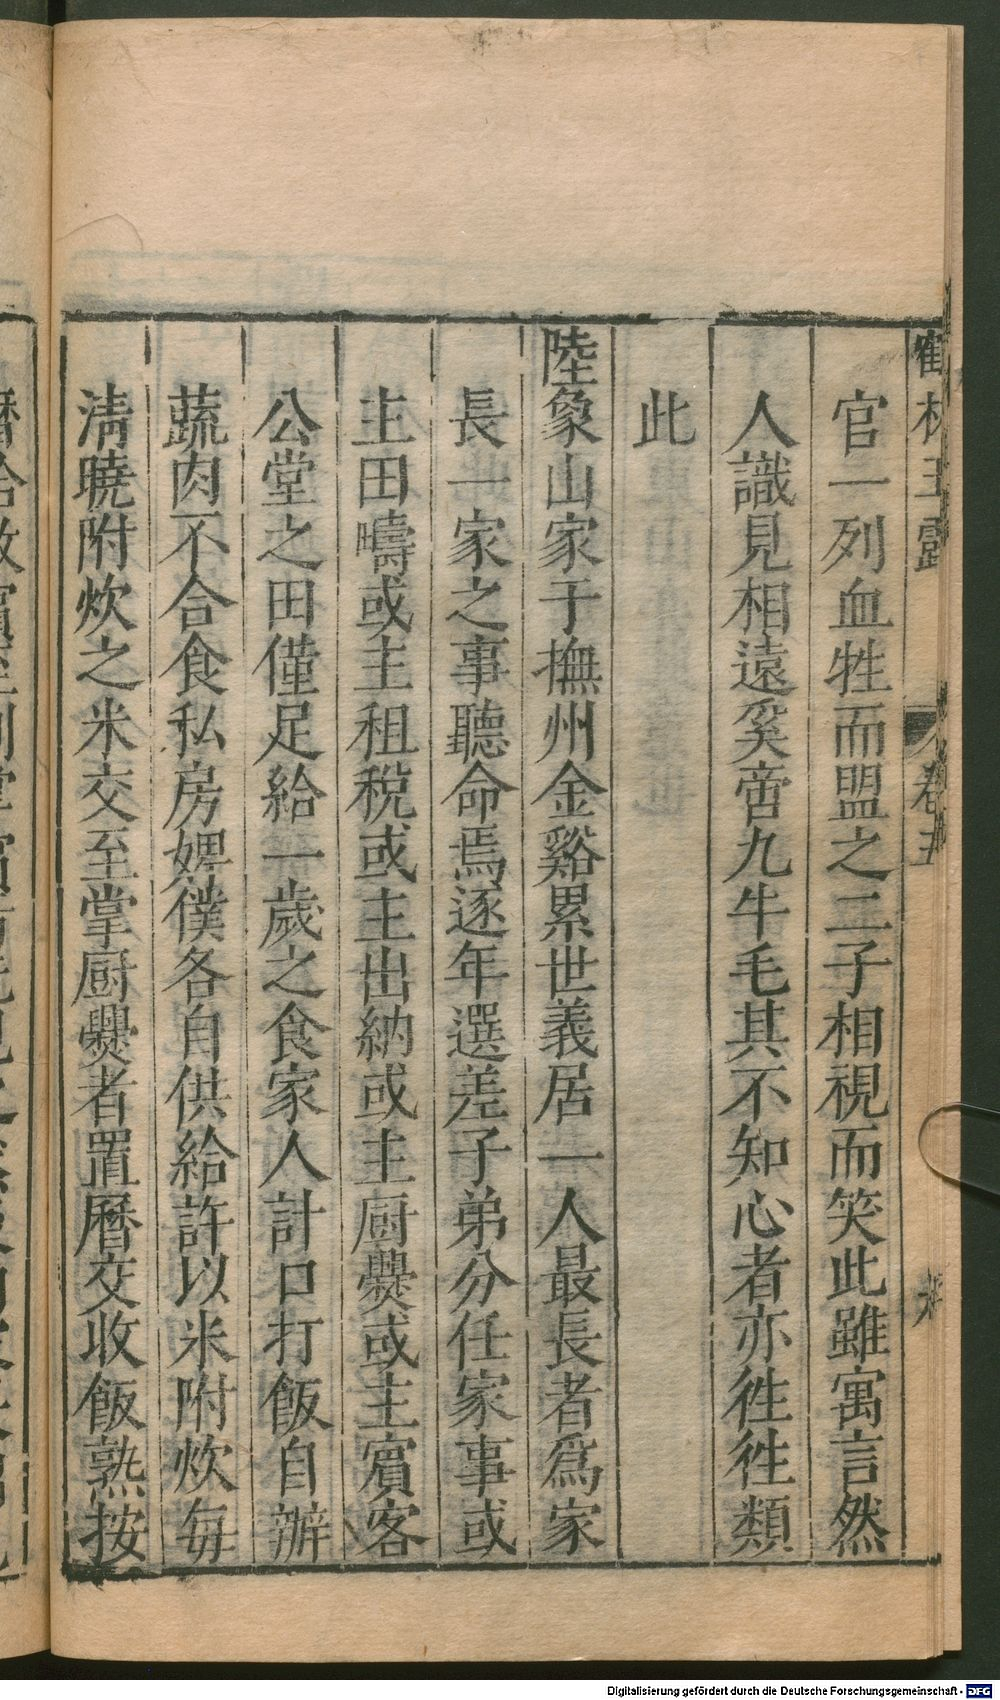 鶴林玉露 卷五
官一列血牲而盟之二子相視而笑此雖寓言然
人識見相遠奚啻九牛毛其不知心者亦徃徃類
此
陸象山家于撫州金谿累世義居一人最長者爲家
長一家之事聽命焉逐年選差子弟分任家事或
主田疇或主租稅或主出納或主厨爨或主賓客
公堂之田僅足給一歲之食家人計口打飯自辦
蔬肉不合食私房婢僕各自供給許以米附炊每
淸曉附炊之米交至掌厨爨者置曆交收飯熟按
Digitalisierung gefördert durch die Deutsche Forschungsgemeinschaft - DFG